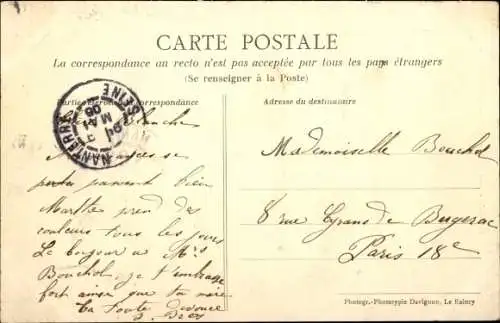 CARTE POSTALE
La correspondance au recto n'est pas acceptée par tous les pays étrangers
(Se renseigner à la Poste)
Partie réservée à la correspondance
Adresse du destinataire
NANTERRE
SEINE
MAI
05
Blanche
se
portes parvient bien
Marthe prend des
couleurs tous les jours
Le bonjour a Mrs
Bouchot, je t'embrasse
fort ainsi que ta mère
Ta toute dévouée
Mademoiselle Bouchot
8 rue Cyrano de Bergerac
Paris 18e
Photogr.-Phototypie Davignon, Le Raincy